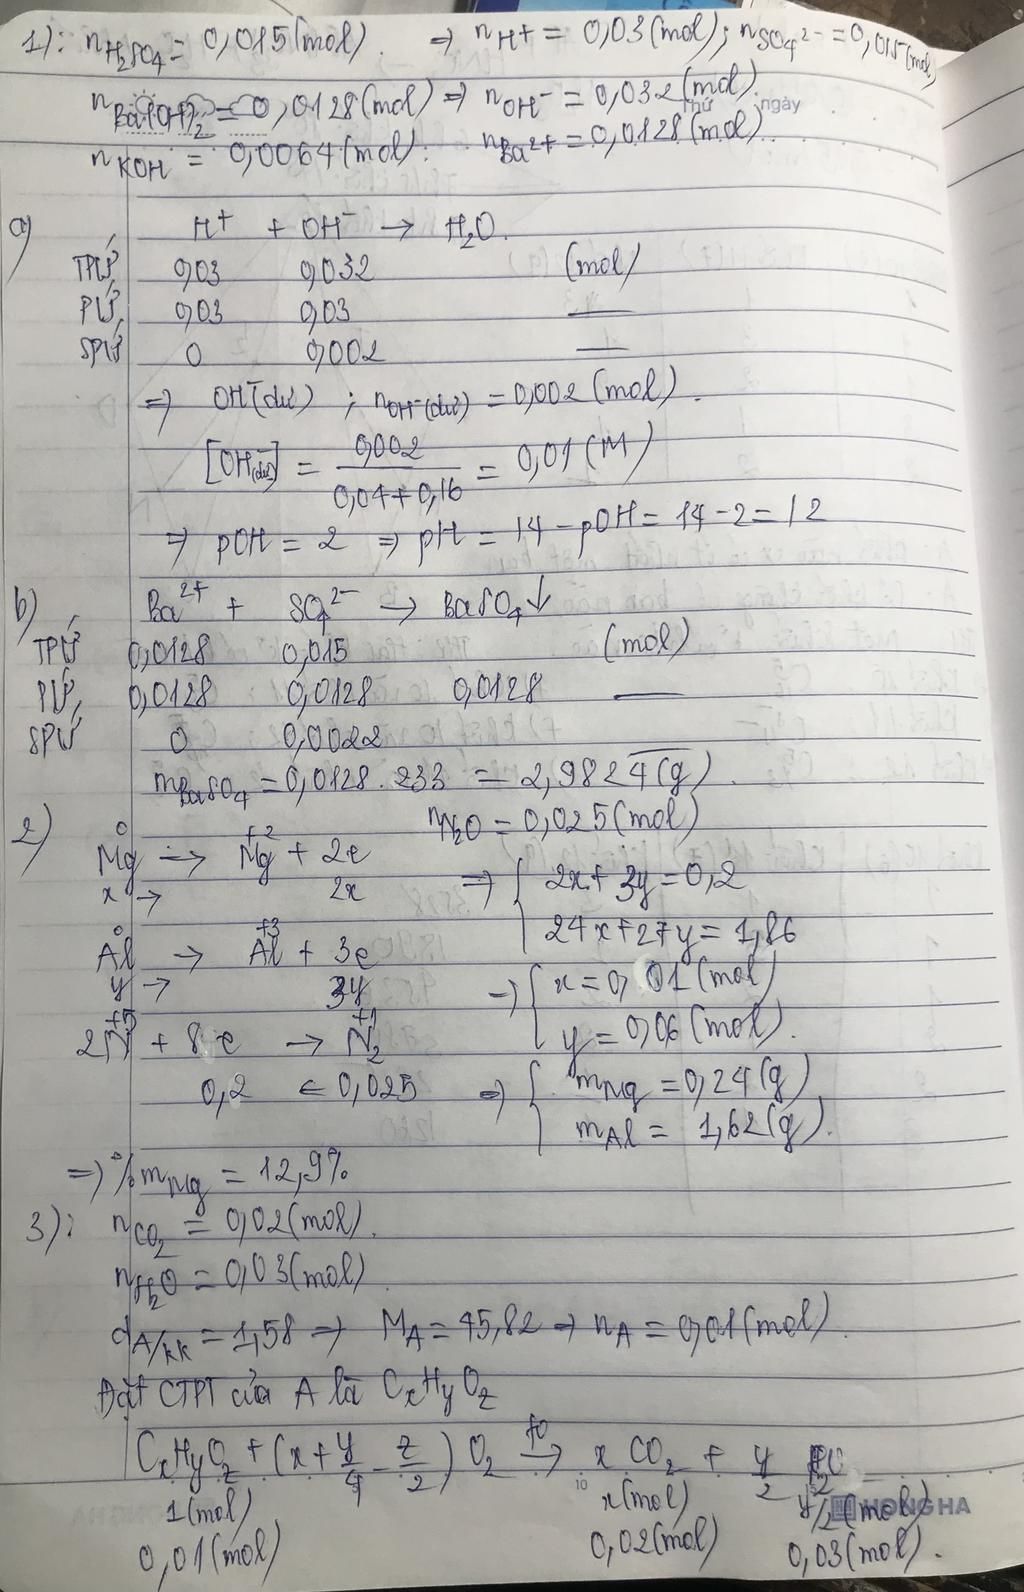 1): nH₂SO₄ = 0,015(mol). ⇒ nH⁺ = 0,03(mol); nSO₄²⁻ = 0,015(mol)
nBa(OH)₂ = 0,0128(mol) ⇒ nOH⁻ = 0,032(mol).
Thứ ngày
nKOH = 0,0064(mol). nBa²⁺ = 0,0128(mol).
a) H⁺ + OH⁻ → H₂O.
TPƯ 0,03 0,032 (mol)
PƯ 0,03 0,03 —
SPƯ 0 0,002 —
⇒ OH⁻(dư) ; nOH⁻(dư) = 0,002(mol).
[OH⁻(dư)] = 0,002/(0,04+0,16) = 0,01(M)
⇒ pOH = 2 ⇒ pH = 14 - pOH = 14 - 2 = 12
b) Ba²⁺ + SO₄²⁻ → BaSO₄↓
TPƯ 0,0128 0,015 (mol)
PƯ 0,0128 0,0128 0,0128 —
SPƯ 0 0,0022
mBaSO₄ = 0,0128.233 = 2,9824(g).
2) nN₂O = 0,025(mol)
Mg⁰ → Mg⁺² + 2e
x → 2x ⇒ { 2x + 3y = 0,2
24x + 27y = 1,86
Al⁰ → Al⁺³ + 3e
y → 3y ⇒ { x = 0,01(mol)
y = 0,06(mol).
2N⁺⁵ + 8e → N₂⁺¹
0,2 ← 0,025 ⇒ { mMg = 0,24(g)
mAl = 1,62(g).
⇒ %mMg = 12,9%
3): nCO₂ = 0,02(mol).
nH₂O = 0,03(mol)
dA/kk = 1,58 ⇒ MA = 45,82 ⇒ nA = 0,01(mol).
Đặt CTPT của A là CxHyOz
CxHyOz + (x + y/4 - z/2) O₂ →t⁰ x CO₂ + y/2 H₂O
10
1(mol) x(mol) y/2(mol)
HONG HA
0,01(mol) 0,02(mol) 0,03(mol).